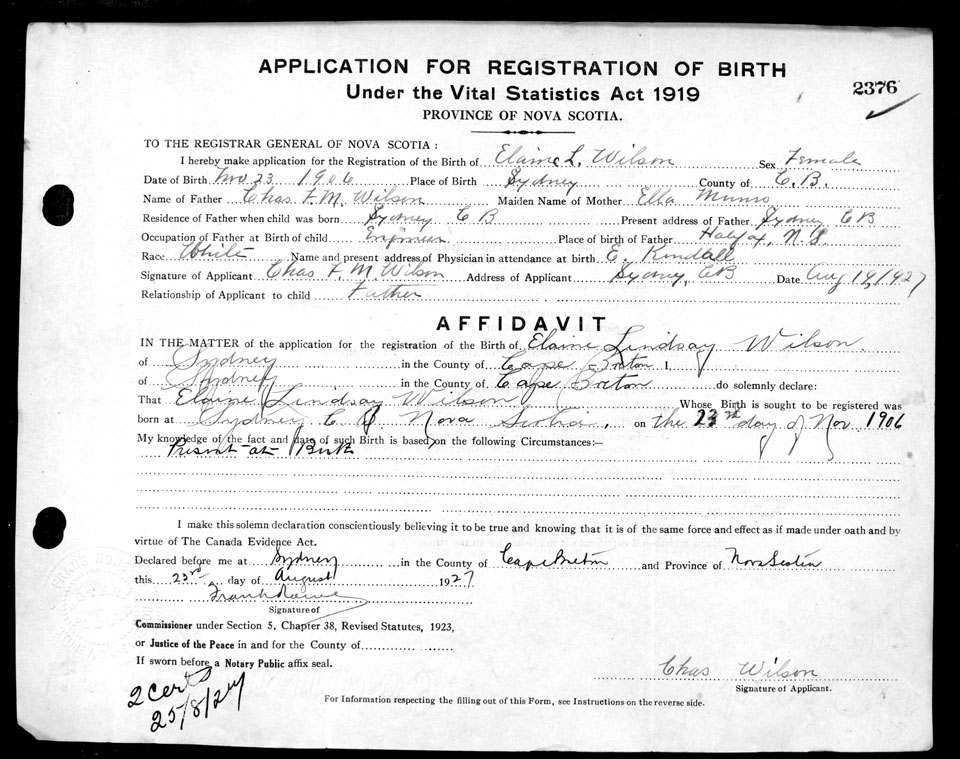 APPLICATION FOR REGISTRATION OF BIRTH
Under the Vital Statistics Act 1919
2376
PROVINCE OF NOVA SCOTIA.
TO THE REGISTRAR GENERAL OF NOVA SCOTIA :
I hereby make application for the Registration of the Birth of Elaine L. Wilson Sex Female
Date of Birth Nov 23 1906 Place of Birth Sydney County of C.B.
Name of Father Chas. F. M. Wilson Maiden Name of Mother Ella Munro
Residence of Father when child was born Sydney C B Present address of Father Sydney CB
Occupation of Father at Birth of child Engineer Place of birth of Father Halifax, N.S.
Race White Name and present address of Physician in attendance at birth E. Kendall
Signature of Applicant Chas F. M. Wilson Address of Applicant Sydney, CB Date Aug 19/1927
Relationship of Applicant to child Father
AFFIDAVIT
IN THE MATTER of the application for the registration of the Birth of Elaine Lindsay Wilson
of Sydney in the County of Cape Breton I,
of Sydney in the County of Cape Breton do solemnly declare:
That Elaine Lindsay Wilson Whose Birth is sought to be registered was
born at Sydney C B Nova Scotia. on the 23rd day of Nov 1906
My knowledge of the fact and date of such Birth is based on the following Circumstances:—
Present at Birth
I make this solemn declaration conscientiously believing it to be true and knowing that it is of the same force and effect as if made under oath and by
virtue of The Canada Evidence Act.
Declared before me at Sydney in the County of Cape Breton and Province of Nova Scotia
this 23rd day of August 1927
Frank
Signature of
Commissioner under Section 5, Chapter 38, Revised Statutes, 1923,
or Justice of the Peace in and for the County of
If sworn before a Notary Public affix seal.
Chas Wilson
Signature of Applicant.
2 Certs
25/8/27
For Information respecting the filling out of this Form, see Instructions on the reverse side.